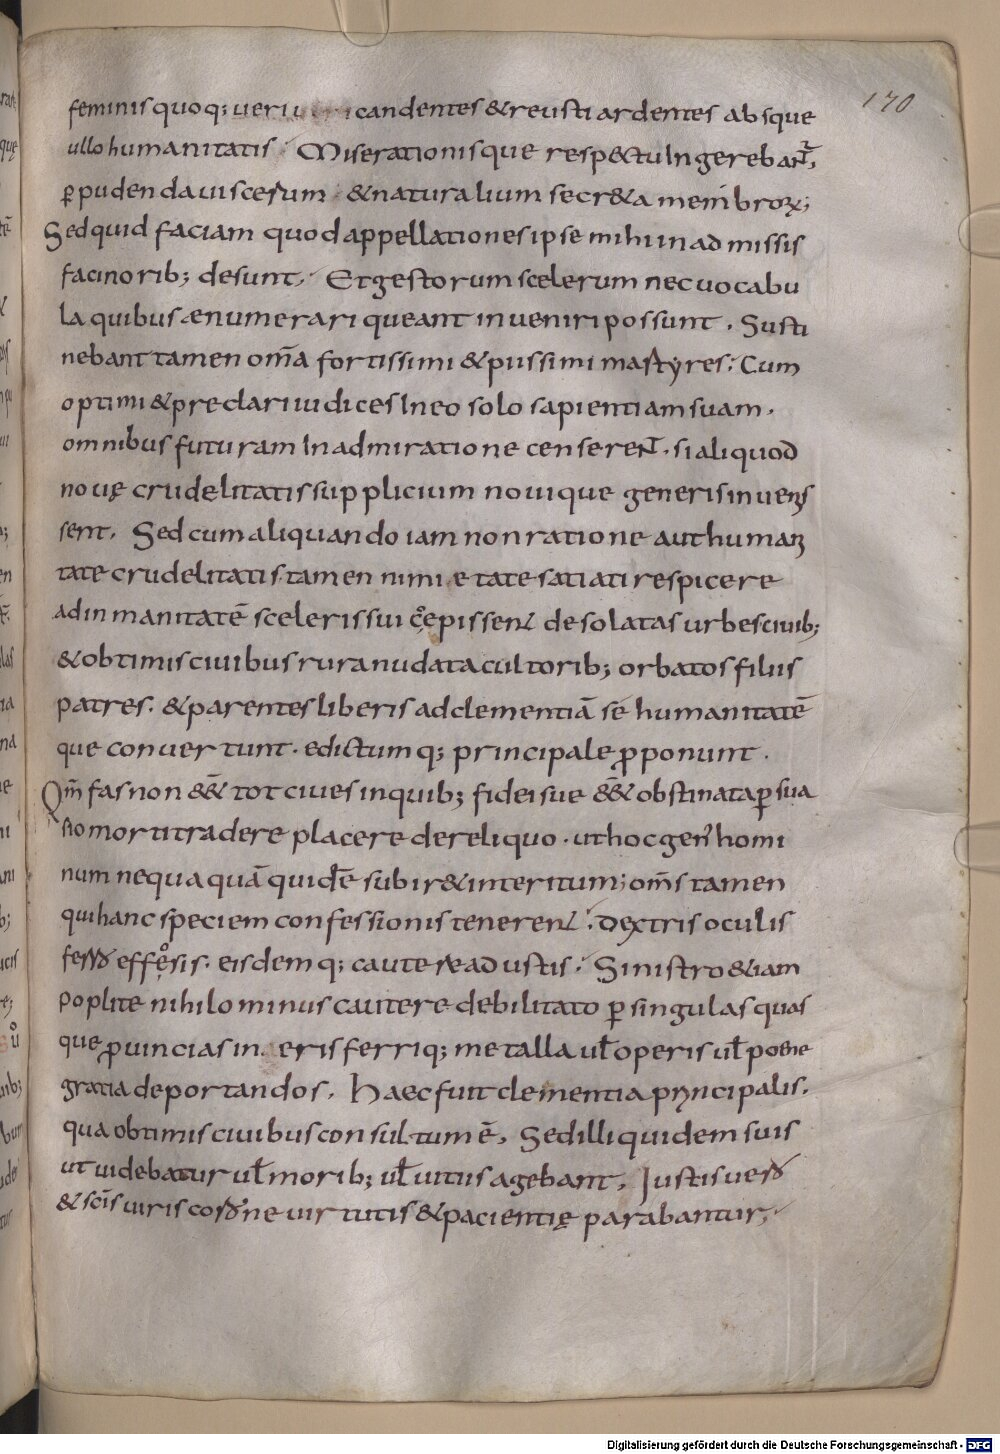 170
feminis quoq; ueru candentes & reusti ardentes absque
ullo humanitatis. Miserationisque respectu Ingerebant̄;
ꝑ pudenda uiscerum. & naturalium secr&a membroꝝ;
Sed quid faciam quod appellationes ipse mihi inadmissis
facinorib; desunt. Et gestorum scelerum nec uocabu
la quibus ænumerari queant inueniri possunt. Susti
nebant tamen om̄a fortissimi & piissimi martyres. Cum
optimi & preclari iudices In eo solo sapientiam suam.
omnibus futuram In admiratione censerent. si aliquod
nouę crudelitatis supplicium nouique generis inuenis
sent. Sed cum aliquando iam non ratione aut humani
tate crudelitatis tamen nimietate satiati respicere
ad inmanitatē sceleris sui cępissent desolatas urbes ciuib;
& obtimis ciuibus rura nudata cultorib; orbatos filiis
patres. & parentes liberis ad clementiā sē humanitatē
que conuertunt. edictumq; principale ꝓponunt.
Qm̄ fas non e&̄ tot ciues in quib; fidei sue e&̄ obstinata ꝑsua
sio morti tradere placere dereliquo. ut hoc gen' homi
num nequaquā quidē subir& interitum; om̄s tamen
qui hanc speciem confessionis tenerent. dextris oculis
ferro effosis. eisdemq; cautere adustis. Sinistro &iam
poplite nihilominus cautere debilitato ꝑ singulas quas
que ꝓuincias in eris ferriq; metalla uƚ operis uƚ poene
gratia deportandos. Haec fuit clementia principalis.
qua obtimis ciuibus consultum ē. Sed illi quidem suis
ut uidebatur uƚ morib; uƚ uitiis agebant. Justis uero
& scīs uiris corone uirtutis & pacientię parabantur;
Digitalisierung gefördert durch die Deutsche Forschungsgemeinschaft - DFG